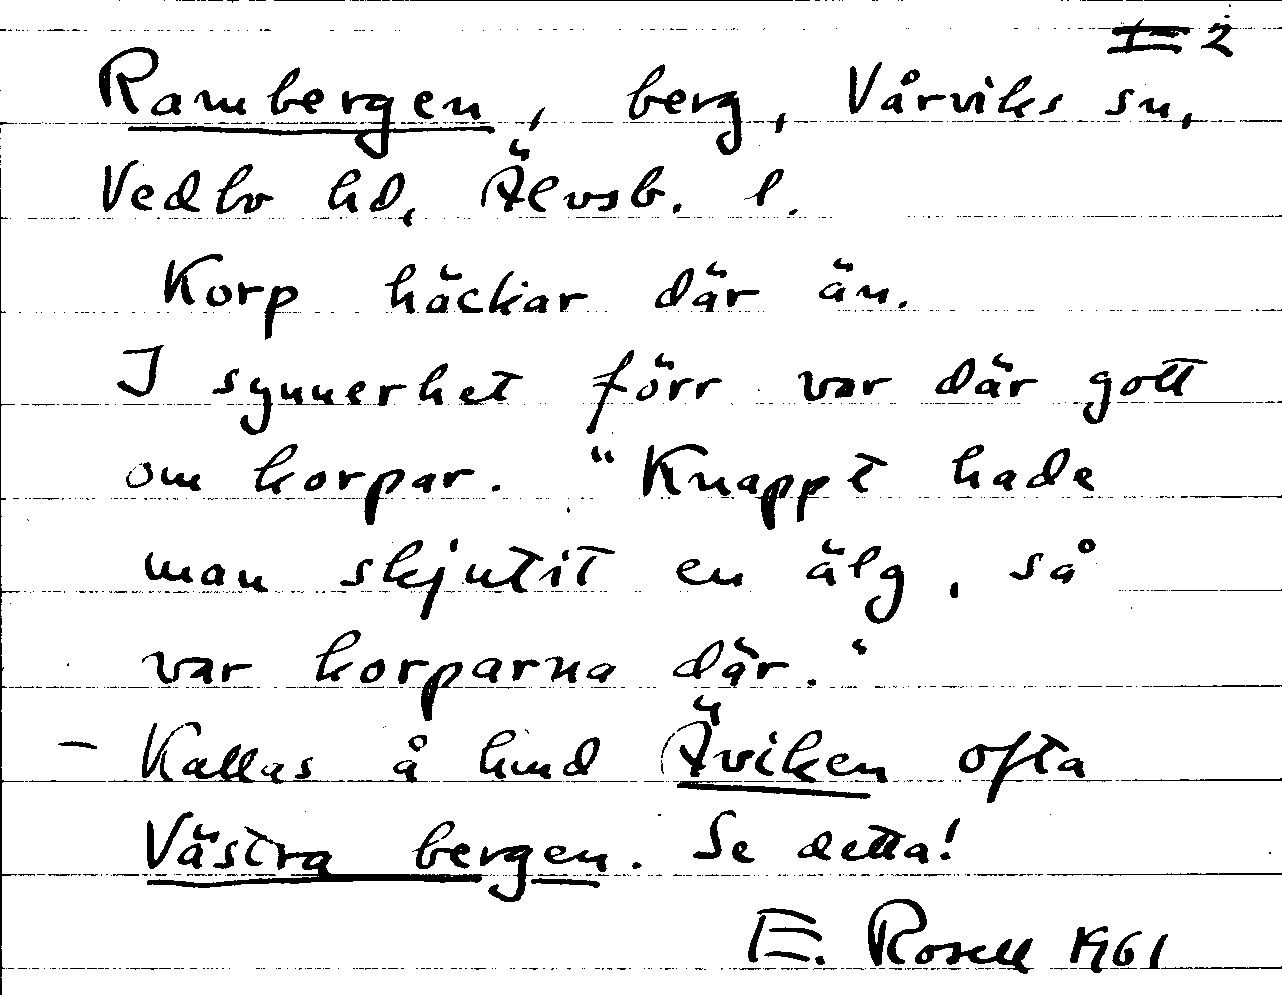 2
Rambergen, berg, Vårviks sn,
Vedbo hd, Älvsb. l.
Korp häckar där än.
I synnerhet förr var där gott
om korpar. "Knappt hade
man skjutit en älg, så
var korparna där."
- Kallas å hmd Äviken ofta
Västra bergen. Se detta!
E. Rosell 1961